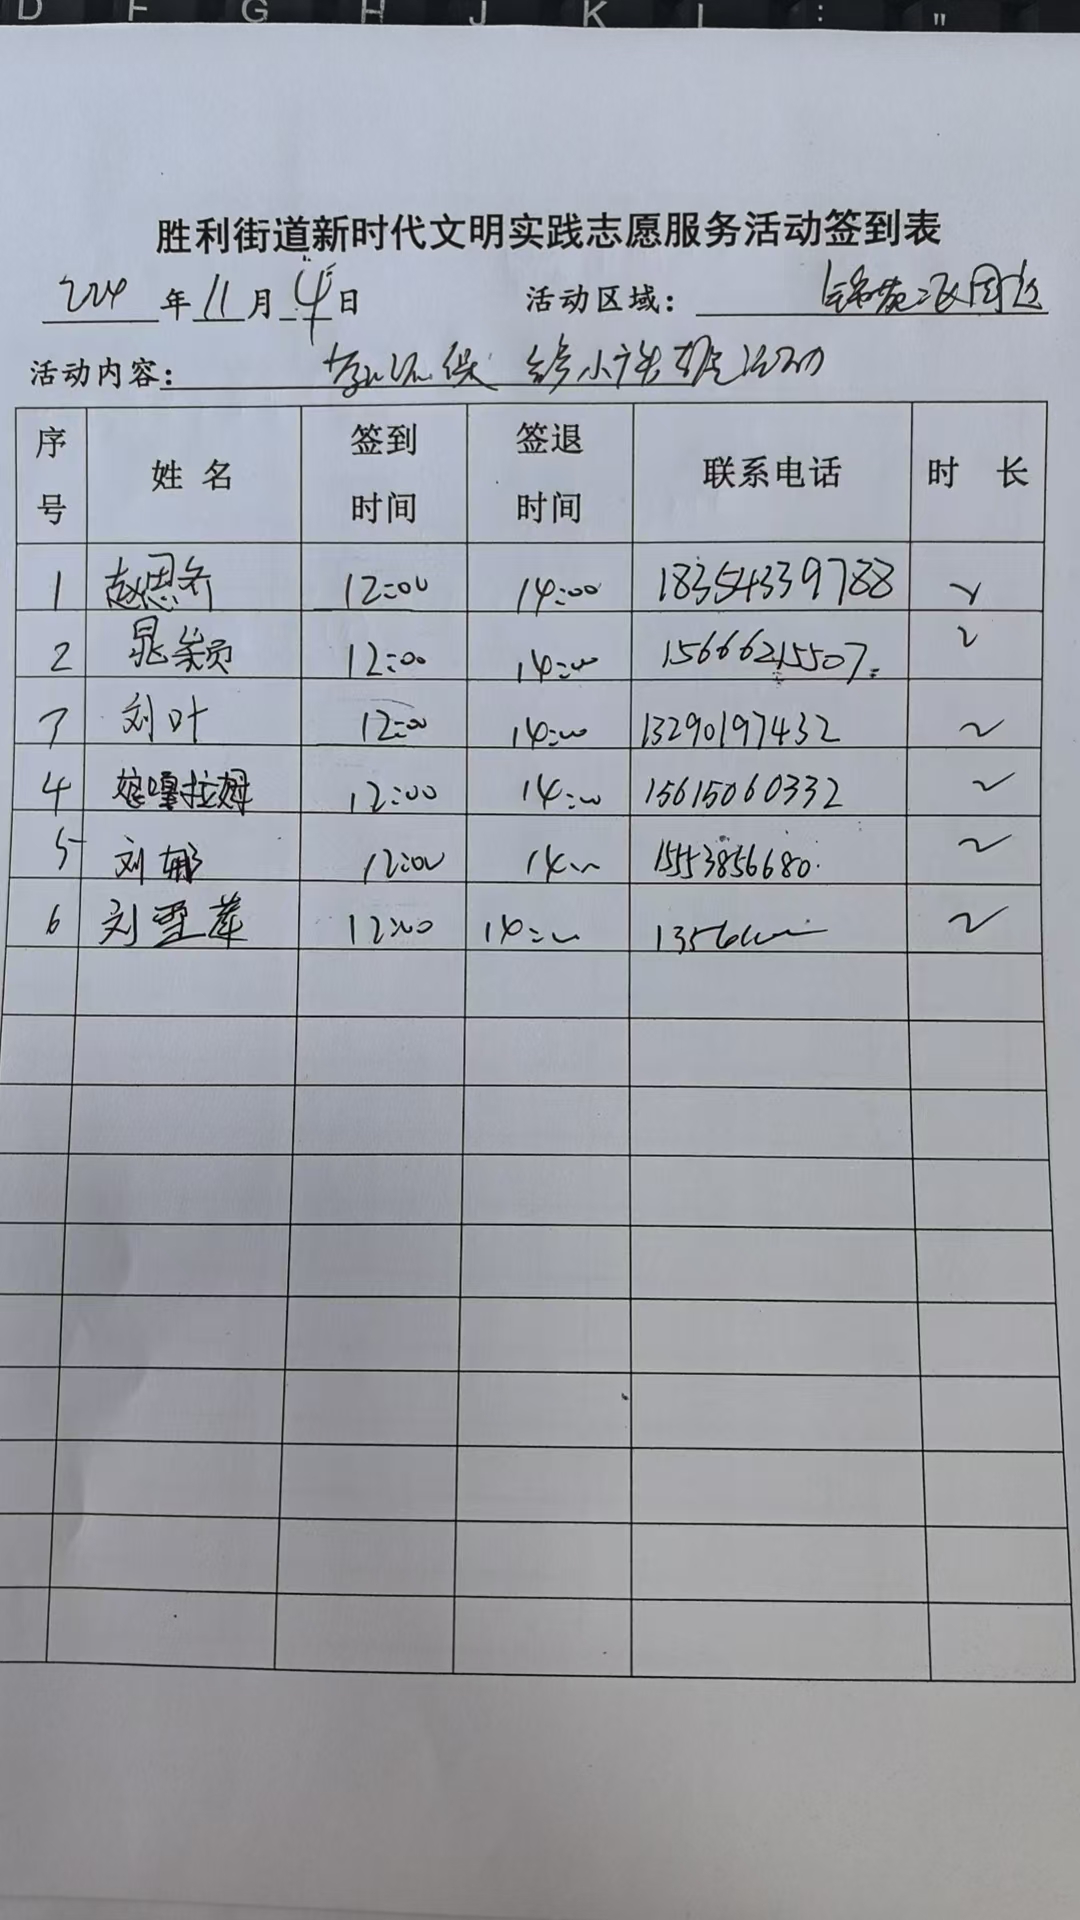 D F G H J K L : "
胜利街道新时代文明实践志愿服务活动签到表
2024 年 11 月 4 日 活动区域： 锦苑二区周边
活动内容：
序号 姓 名 签到时间 签退时间 联系电话 时 长
1 赵思齐 12:00 14:00 18354339788 2
2 晁颖 12:00 14:00 15666215507 2
3 刘叶 12:00 14:00 13290197432 2
4 嘎拉姆 12:00 14:00 15615060332 2
5 刘娜 12:00 14:00 15553856680 2
6 刘雪萍 12:00 14:00 2